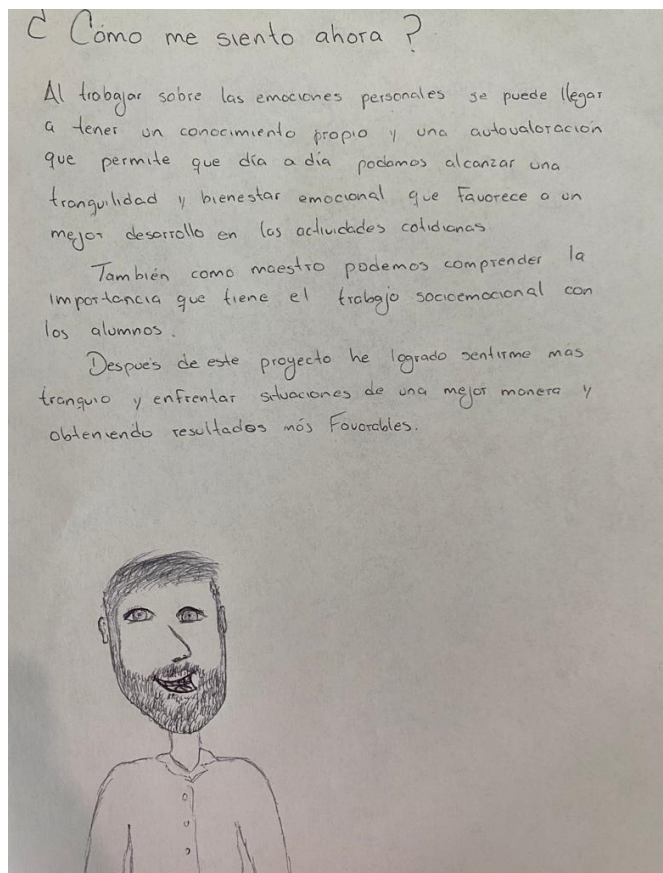 ¿ Cómo me siento ahora ?
Al trabajar sobre las emociones personales se puede llegar
a tener un conocimiento propio y una autovaloración
que permite que día a día podamos alcanzar una
tranquilidad y bienestar emocional que Favorece a un
mejor desarrollo en las actividades cotidianas.
También como maestro podemos comprender la
importancia que tiene el trabajo socioemocional con
los alumnos.
Después de este proyecto he logrado sentirme más
tranquio y enfrentar situaciones de una mejor manera y
obteniendo resultados más Favorables.